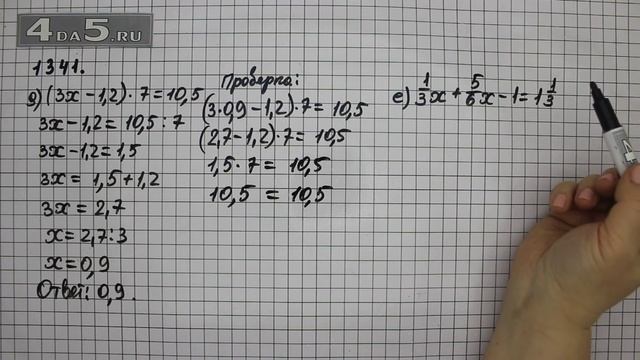 4DA5.RU
1341.
д) (3x - 1,2) · 7 = 10,5
3x - 1,2 = 10,5 : 7
3x - 1,2 = 1,5
3x = 1,5 + 1,2
3x = 2,7
x = 2,7 : 3
x = 0,9
Ответ: 0,9.
Проверка:
(3 · 0,9 - 1,2) · 7 = 10,5
(2,7 - 1,2) · 7 = 10,5
1,5 · 7 = 10,5
10,5 = 10,5
е) 1/3 x + 5/6 x - 1 = 1 1/3